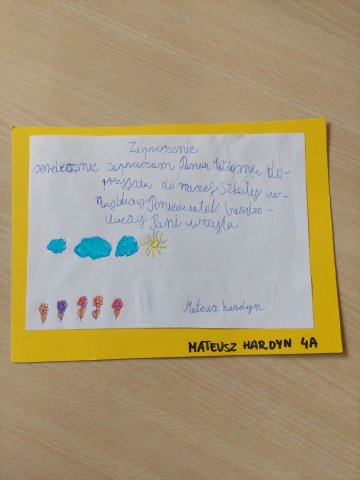 Zaproszenie
serdecznie zapraszam Pania Wiosnę do-
przyjścia do naszej Szkoły w-
Poniedziałek bardzo-
Pani wizyta
Mateusz hardyn
MATEUSZ HARDYN 4A